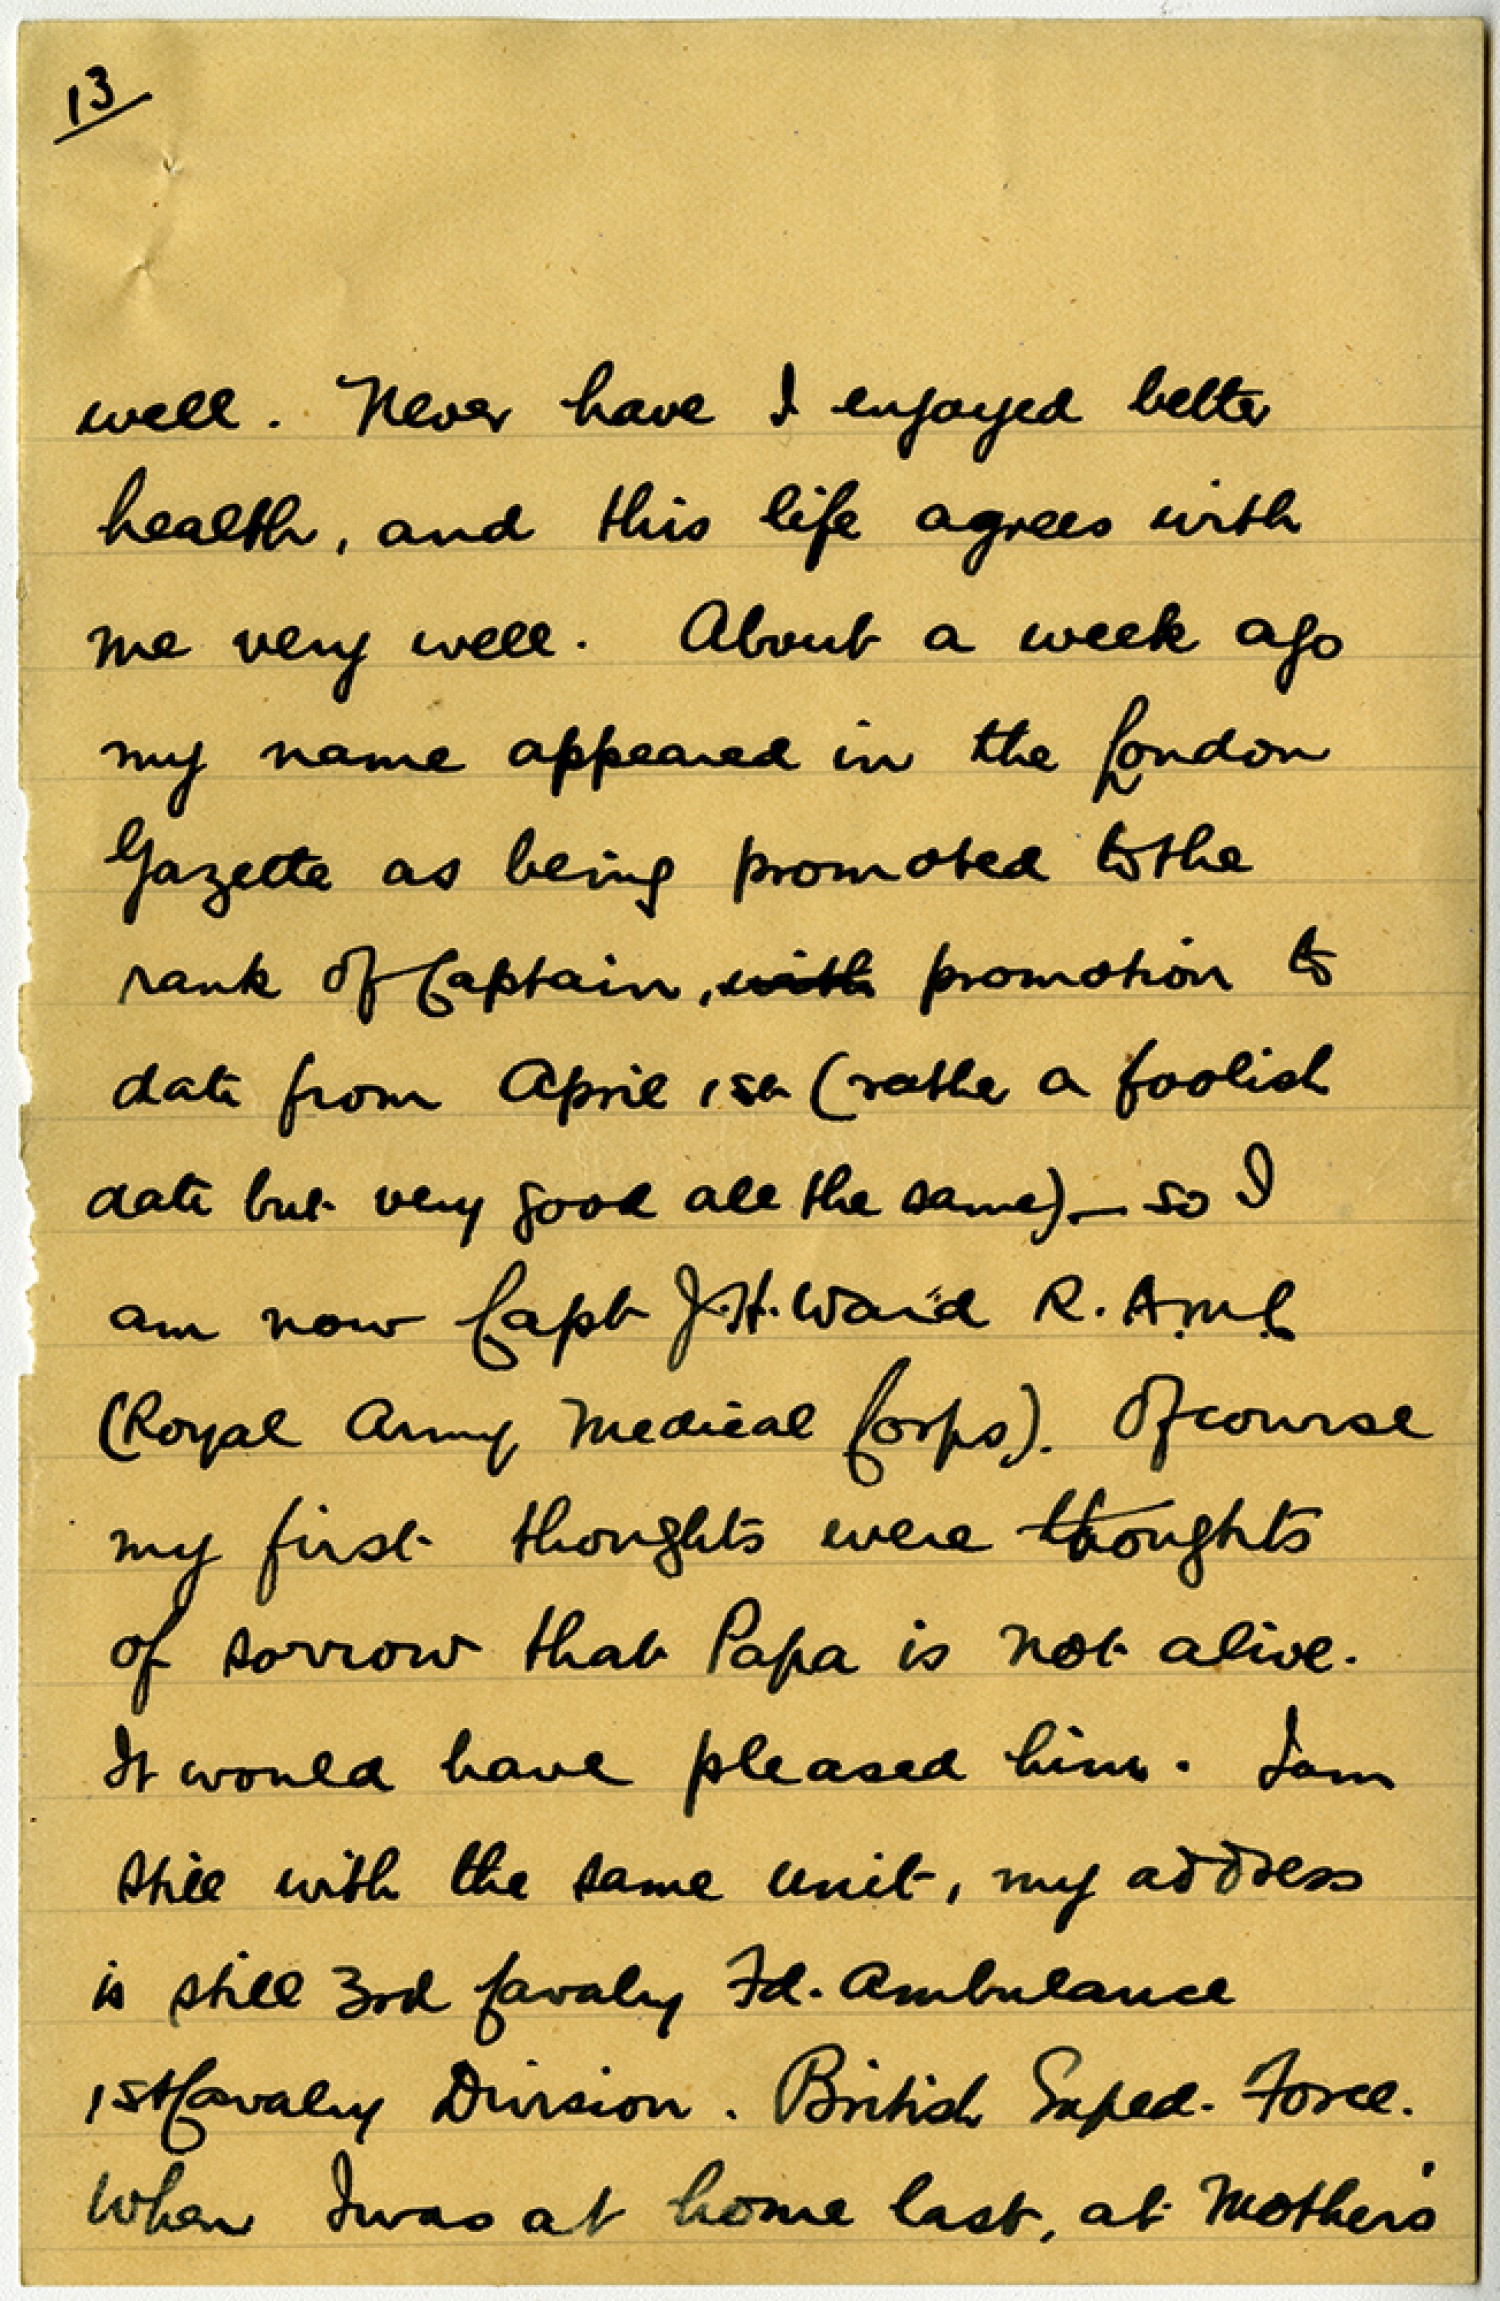 13
well. Never have I enjoyed better
health, and this life agrees with
me very well. About a week ago
my name appeared in the London
Gazette as being promoted to the
rank of Captain, with promotion to
date from April 1st (rather a foolish
date but very good all the same) — so I
am now Capt J.H. Ward R.A.M.C.
(Royal Army Medical Corps). Of course
my first thoughts were thoughts
of sorrow that Papa is not alive.
It would have pleased him. I am
still with the same unit, my address
is still 3rd Cavalry Fd. Ambulance
1st Cavalry Division. British Exped. Force.
When I was at home last, at Mother's